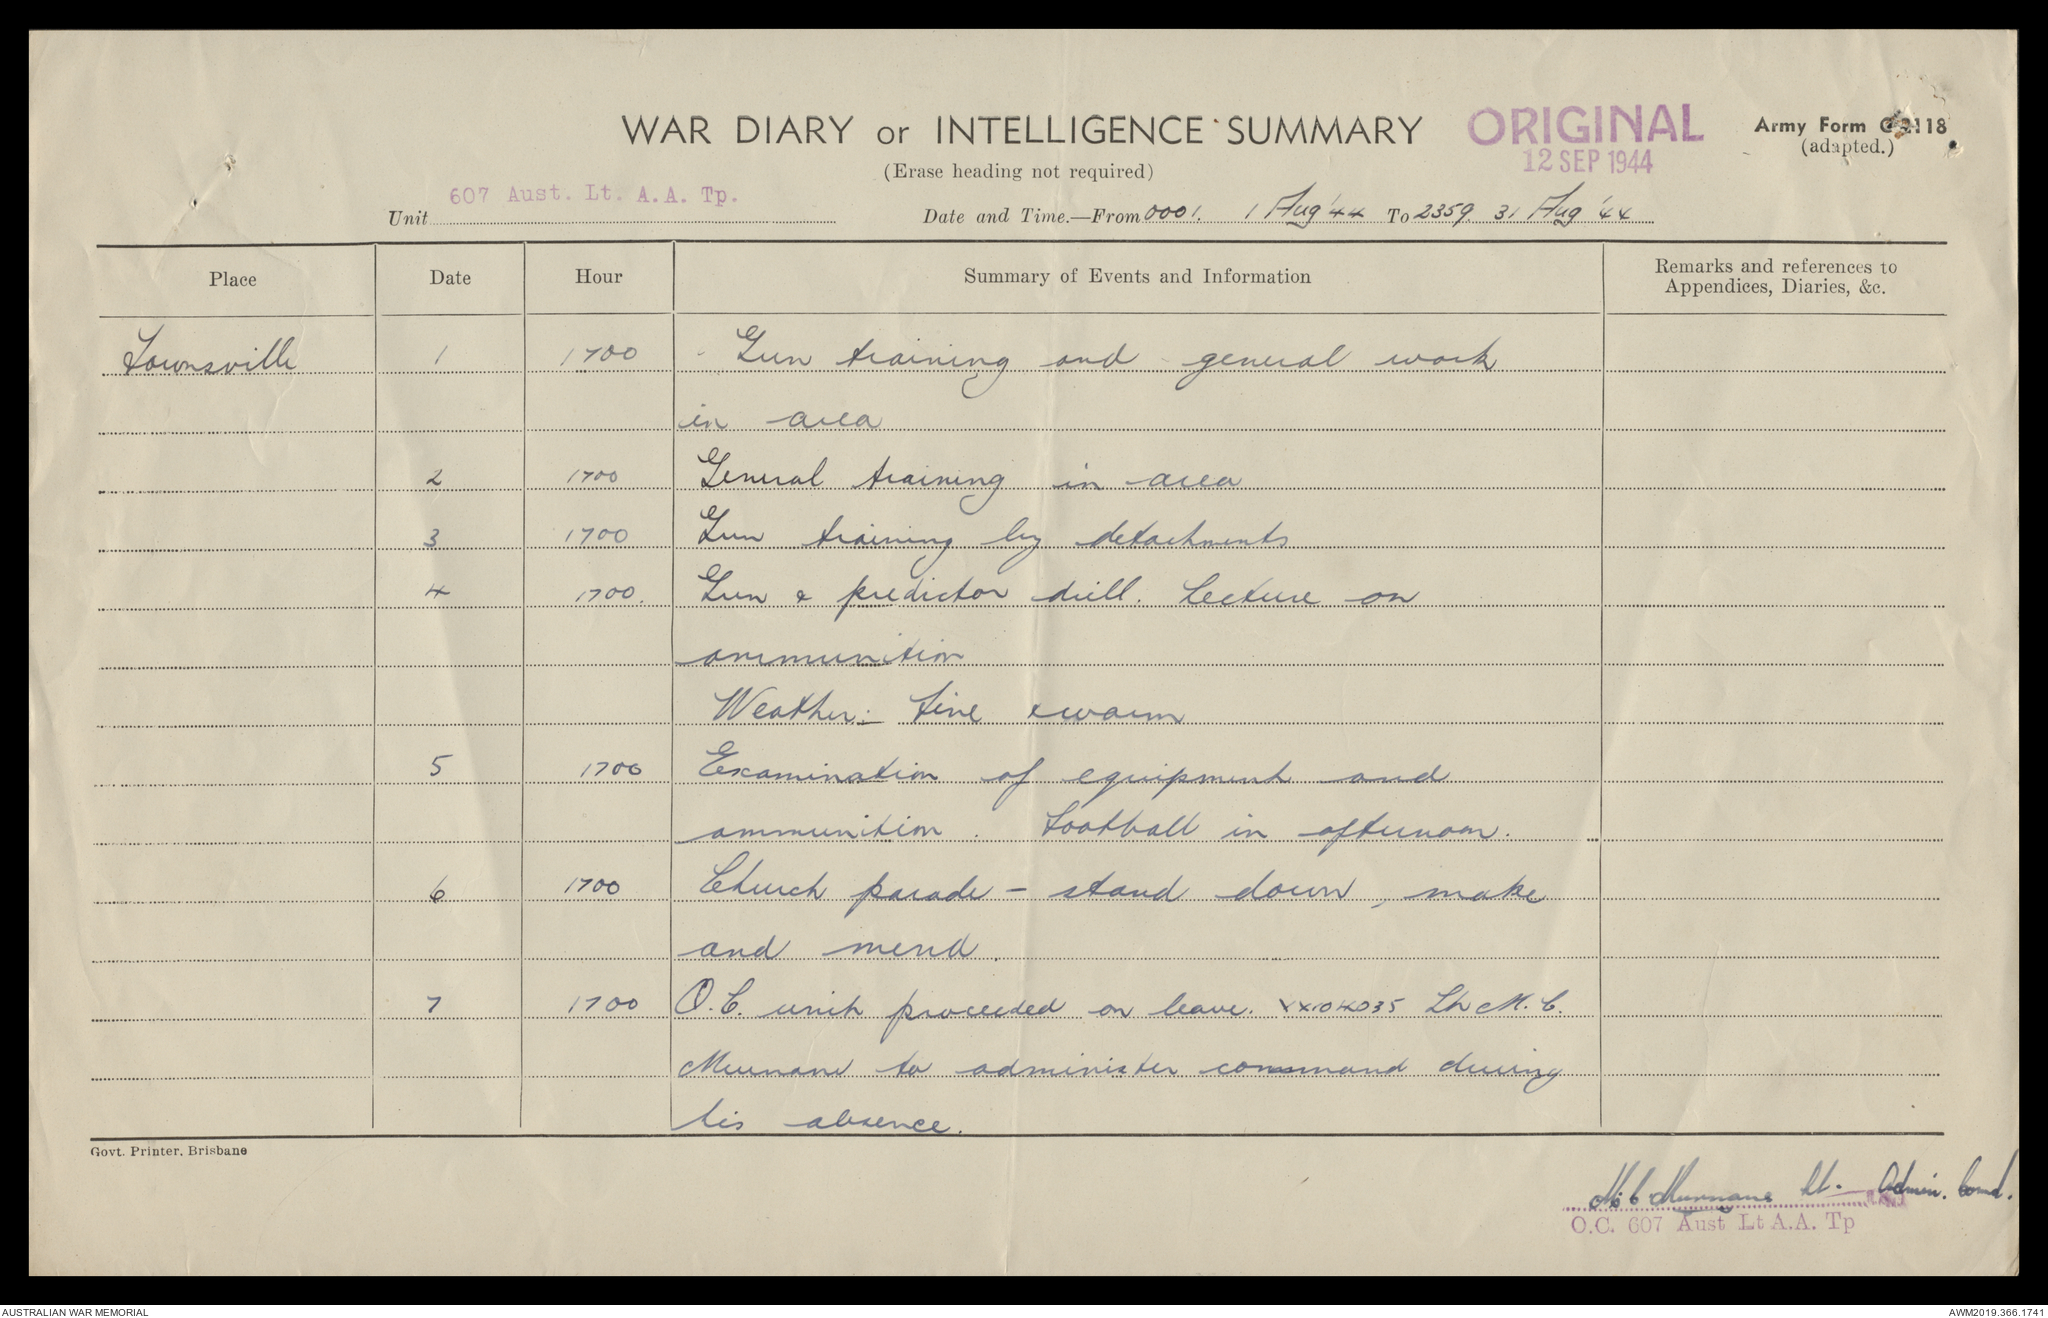 WAR DIARY or INTELLIGENCE SUMMARY
ORIGINAL
12 SEP 1944
Army Form C 2118
(adapted.)
(Erase heading not required)
Unit 607 Aust. Lt. A.A. Tp.
Date and Time.—From 0001. 1 Aug '44 To 2359 31 Aug '44
Place Date Hour Summary of Events and Information Remarks and references to
Appendices, Diaries, &c.
Townsville 1 1700 Gun training and general work
in area
2 1700 General training in area
3 1700 Gun training by detachments
4 1700. Gun & predictor drill. Lecture on
ammunition
Weather:- fine & warm
5 1700 Examination of equipment and
ammunition. Football in afternoon.
6 1700 Church parade - stand down, make
and mend.
7 1700 O.C. unit proceeded on leave. VX104035 Lt M.C.
Murnane to administer command during
his absence.
Govt. Printer, Brisbane
M C Murnane Lt. Admin. Comd.
O.C. 607 Aust Lt A.A. Tp
AUSTRALIAN WAR MEMORIAL
AWM2019.366.1741